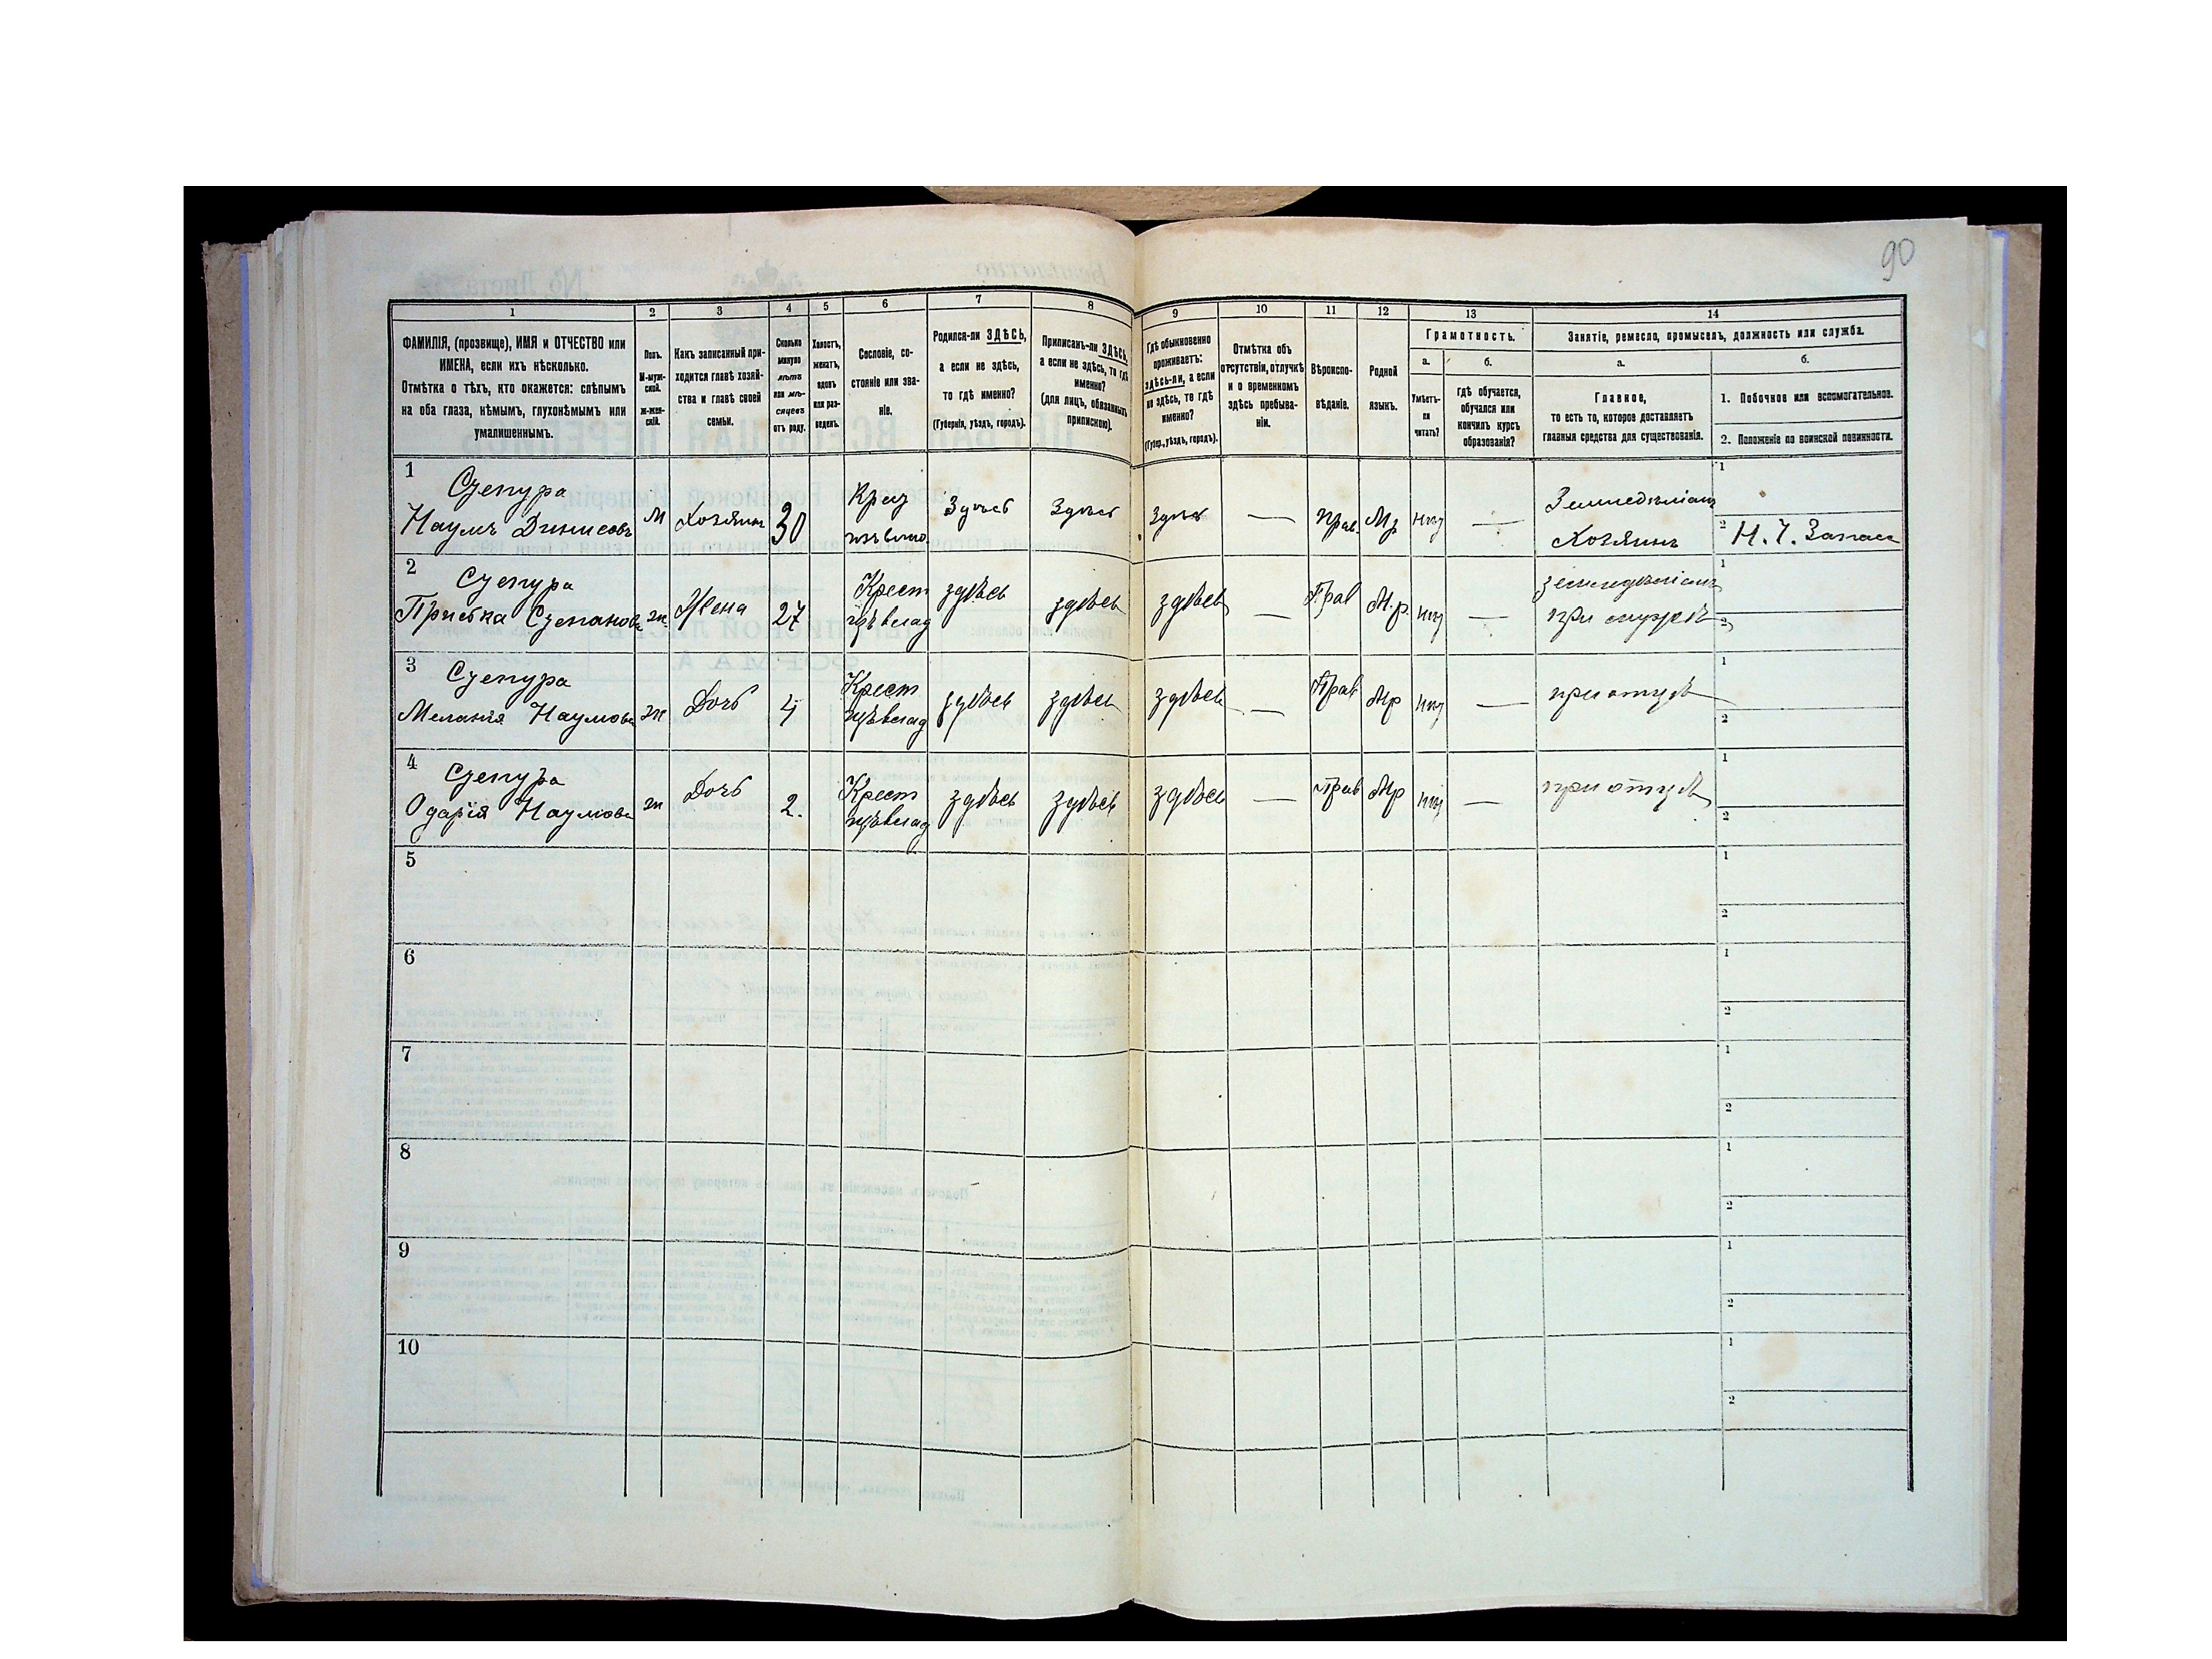 90
1 2 3 4 5 6 7 8 9 10 11 12 13 14
ФАМИЛІЯ, (прозвище), ИМЯ и ОТЧЕСТВО или
ИМЕНА, если ихъ нѣсколько.
Отмѣтка о тѣхъ, кто окажется: слѣпымъ
на оба глаза, нѣмымъ, глухонѣмымъ или
умалишеннымъ.
Полъ.
М-муж-
ской.
ж-жен-
скій.
Какъ записанный при-
ходится главѣ хозяй-
ства и главѣ своей
семьи.
Сколько
минуло
лѣтъ
или мѣ-
сяцевъ
отъ роду.
Холостъ,
женатъ,
вдовъ
или раз-
веденъ.
Сословіе, со-
стояніе или зва-
ніе.
Родился-ли ЗДѢСЬ,
а если не здѣсь,
то гдѣ именно?
(Губернія, уѣздъ, городъ).
Приписанъ-ли ЗДѢСЬ,
а если не здѣсь, то гдѣ
именно?
(для лицъ, обязанныхъ
припискою).
Гдѣ обыкновенно
проживаетъ:
здѣсь-ли, а если
не здѣсь, то гдѣ
именно?
(Губер., уѣздъ, городъ).
Отмѣтка объ
отсутствіи, отлучкѣ
и о временномъ
здѣсь пребыва-
ніи.
Вѣроиспо-
вѣданіе.
Родной
языкъ.
Грамотность.
а.
Умѣетъ-
ли
читать?
б.
Гдѣ обучается,
обучался или
кончилъ курсъ
образованія?
Занятіе, ремесло, промыселъ, должность или служба.
а.
Главное,
то есть то, которое доставляетъ
главныя средства для существованія.
б.
1. Побочное или вспомогательное.
2. Положеніе по воинской повинности.
1 Сцепура
Наумъ Динисовъ
М
Хозяинъ
30
Крец
Здѣсь
Здѣсь
Здѣсь
—
Прав.
Мр
—
Хозяинъ
1
2 Н. Ч. Запаса
2 Сцепура
Приська Сцепанова
ж
Жена
27
Крест
здѣсь
здѣсь
здѣсь
—
Прав
М.р.
—
при мужѣ
1
2
3 Сцепура
Меланія Наумова
ж
Дочь
4
Крест
здѣсь
здѣсь
здѣсь
—
Прав
Мр
—
при отцѣ
1
2
4 Сцепура
Одарія Наумова
ж
Дочь
2.
Крест
здѣсь
здѣсь
здѣсь
—
Прав
Мр
—
при отцѣ
1
2
5
1
2
6
1
2
7
1
2
8
1
2
9
1
2
10
1
2